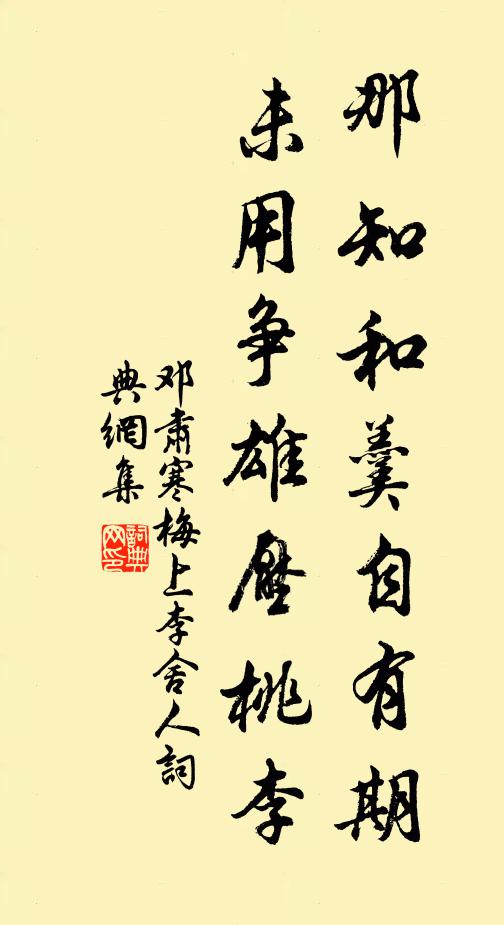 那知和羹自有期
未用争雄壓桃李
邓肃寒梅上李舍人詞
典網集
詞典
网印